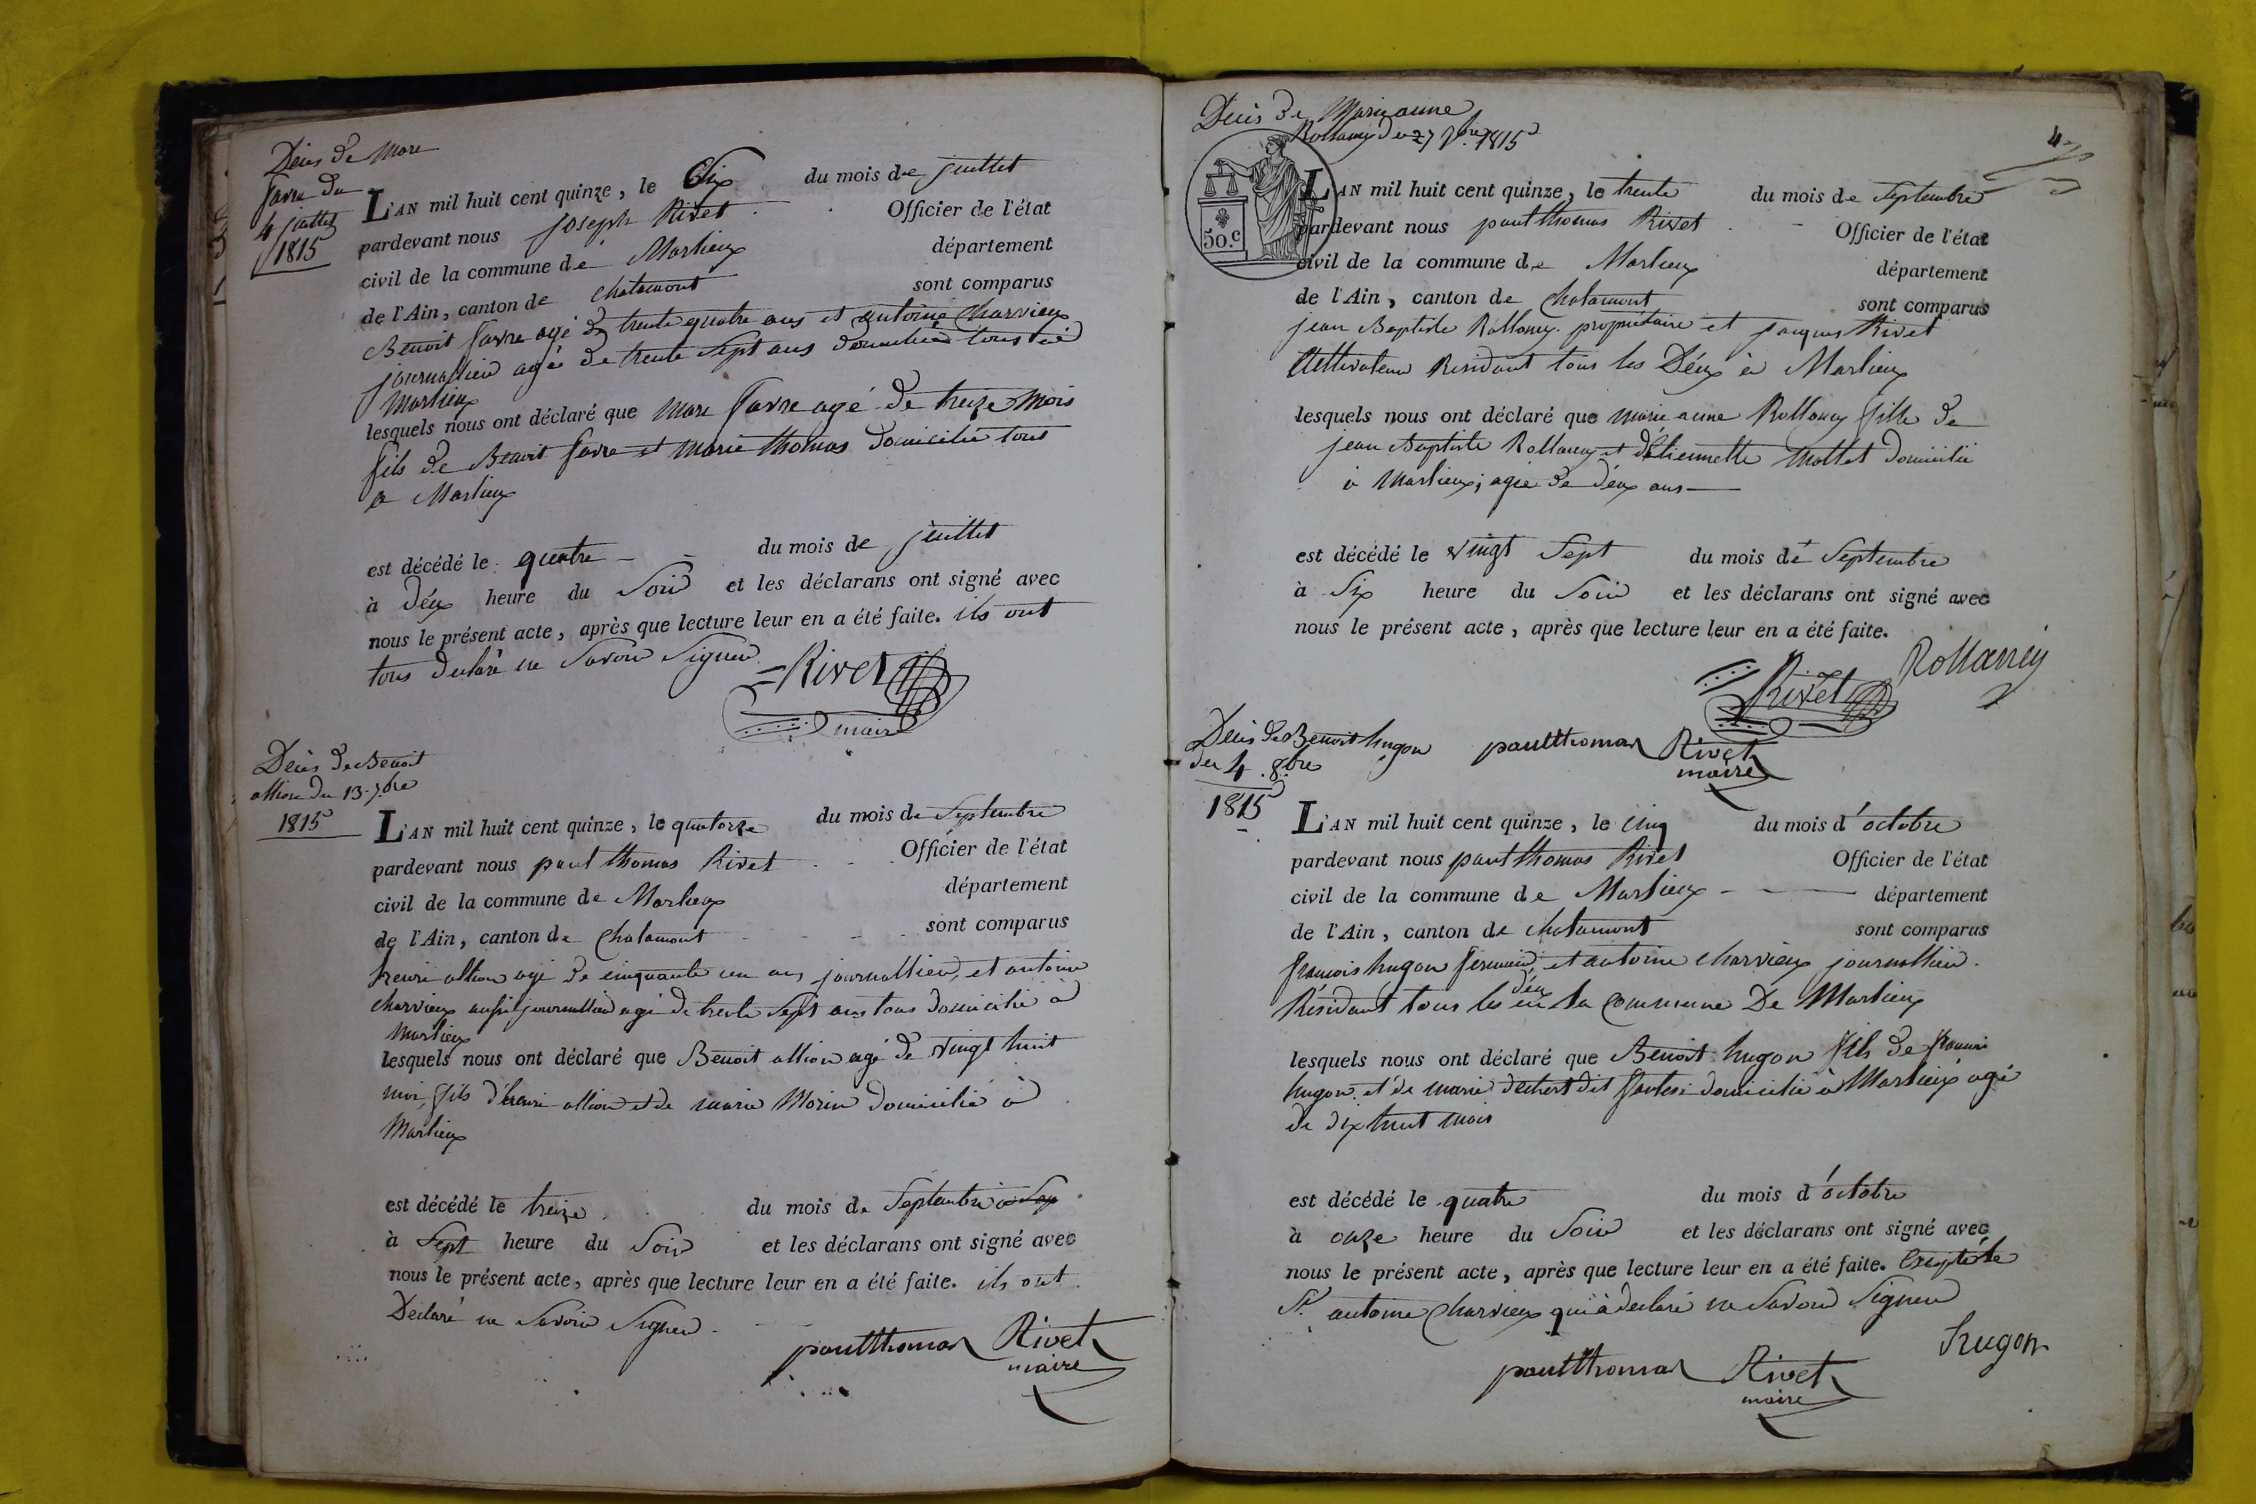 Décès de Marc
favre du
4 juillet
1815
L'AN mil huit cent quinze, le dix du mois de juillet
pardevant nous joseph Rivet Officier de l'état
civil de la commune de Marlieux département
de l'Ain, canton de chalamont sont comparus
Benoit favre agé de trente quatre ans et antoine Charvieux
journallier agé de trente sept ans domicilié tous à
Marlieux
lesquels nous ont déclaré que marc favre agé de treize mois
fils de Benoit favre et marie thomas domicilié tous
a Marlieux
est décédé le quatre du mois de juillet
à déux heure du Soir et les déclarans ont signé avec
nous le présent acte, après que lecture leur en a été faite. ils ont
tous declaré ne Savoir Signer
Rivet
maire
Décès de Benoit
allion du 13 7.bre
1815
L'AN mil huit cent quinze, le quatorze du mois de Septembre
pardevant nous paul thomas Rivet Officier de l'état
civil de la commune de Marlieux département
de l'Ain, canton de chalamont sont comparus
henri allion agé de cinquante un ans journallier, et antoine
charvieux aussi journallier agé de trente Sept ans tous domicilié à
Marlieux
lesquels nous ont déclaré que Benoit allion agé de vingt huit
moi, fils d'henri allion et de marie Morin domicilié à
Marlieux
est décédé le treize du mois de Septembre
à Sept heure du Soir et les déclarans ont signé avec
nous le présent acte, après que lecture leur en a été faite. ils ont
Declaré ne Savoir Signer
paulthomas Rivet
maire
Décès de Marie anne
Rollancy du 27 7.bre 1815
4
50.c
L'AN mil huit cent quinze, le trente du mois de Septembre
pardevant nous paul thomas Rivet Officier de l'état
civil de la commune de Marlieux département
de l'Ain, canton de chalamont sont comparus
jean Baptiste Rollancy propriétaire et jacques Rivet
Cultivateur Residant tous les Déux à Marlieux
lesquels nous ont déclaré que marie anne Rollancy fille de
jean Baptiste Rollancy et d'Etiennette Mollet domicilié
à Marlieux, agée de déux ans
est décédé le vingt Sept du mois de Septembre
à Six heure du Soir et les déclarans ont signé avec
nous le présent acte, après que lecture leur en a été faite.
Rivet Rollancy
paulthomas Rivet
maire
Décès de Benoit hugon
du 4 8.bre
1815
L'AN mil huit cent quinze, le cinq du mois d'octobre
pardevant nous paul thomas Rivet Officier de l'état
civil de la commune de Marlieux département
de l'Ain, canton de chalamont sont comparus
françois hugon fermier, et antoine charvieux journallier
Résidant tous les déux en la Commune De Marlieux
lesquels nous ont déclaré que Benoit hugon fils de françois
hugon et de marie dechert dit domicilié à Marlieux agé
de dix huit mois
est décédé le quatre du mois d'octobre
à onze heure du Soir et les déclarans ont signé avec
nous le présent acte, après que lecture leur en a été faite. Excepté le
Sr. antoine Charvieux qui à declaré ne Savoir Signer
hugon
paulthomas Rivet
maire